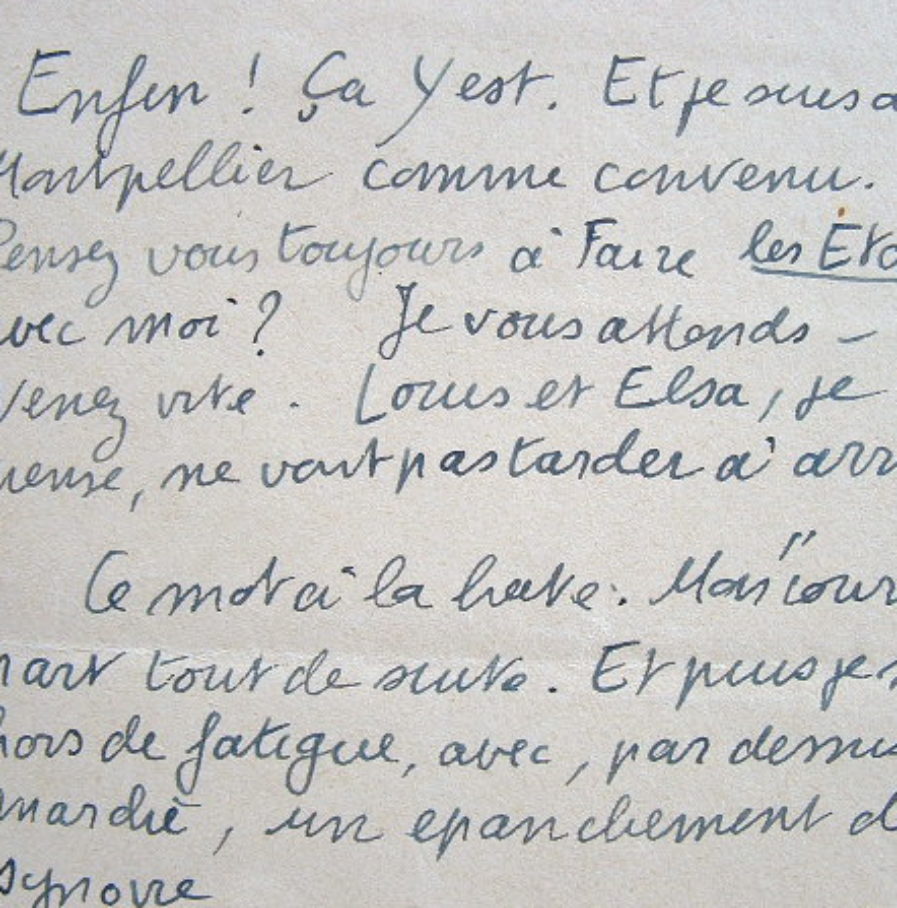 Enfin ! Ça Y est. Et je suis a
Montpellier comme convenu.
Pensez vous toujours à Faire les Eto
avec moi ? Je vous attends –
Venez vite. Louis et Elsa, je
pense, ne vont pas tarder à arr
Ce mot à la hate. Mon "cour
part tout de suite. Et puis je s
hors de fatigue, avec, par dessus
marché, un epanchement d
synovie